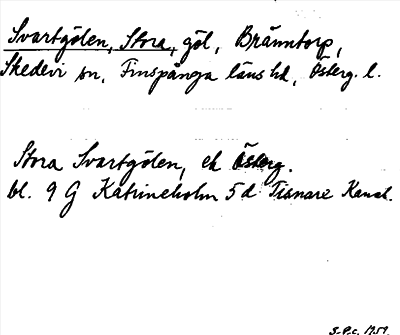 Svartgölen, Stora, göl, Bränntorp,
Skedevi sn, Finspånga läns hd, Österg. l.
Stora Svartgölen, ek Österg.
bl. 9 G Katrineholm 5 d Tisnare Kanal.
S.P.c. 1959.